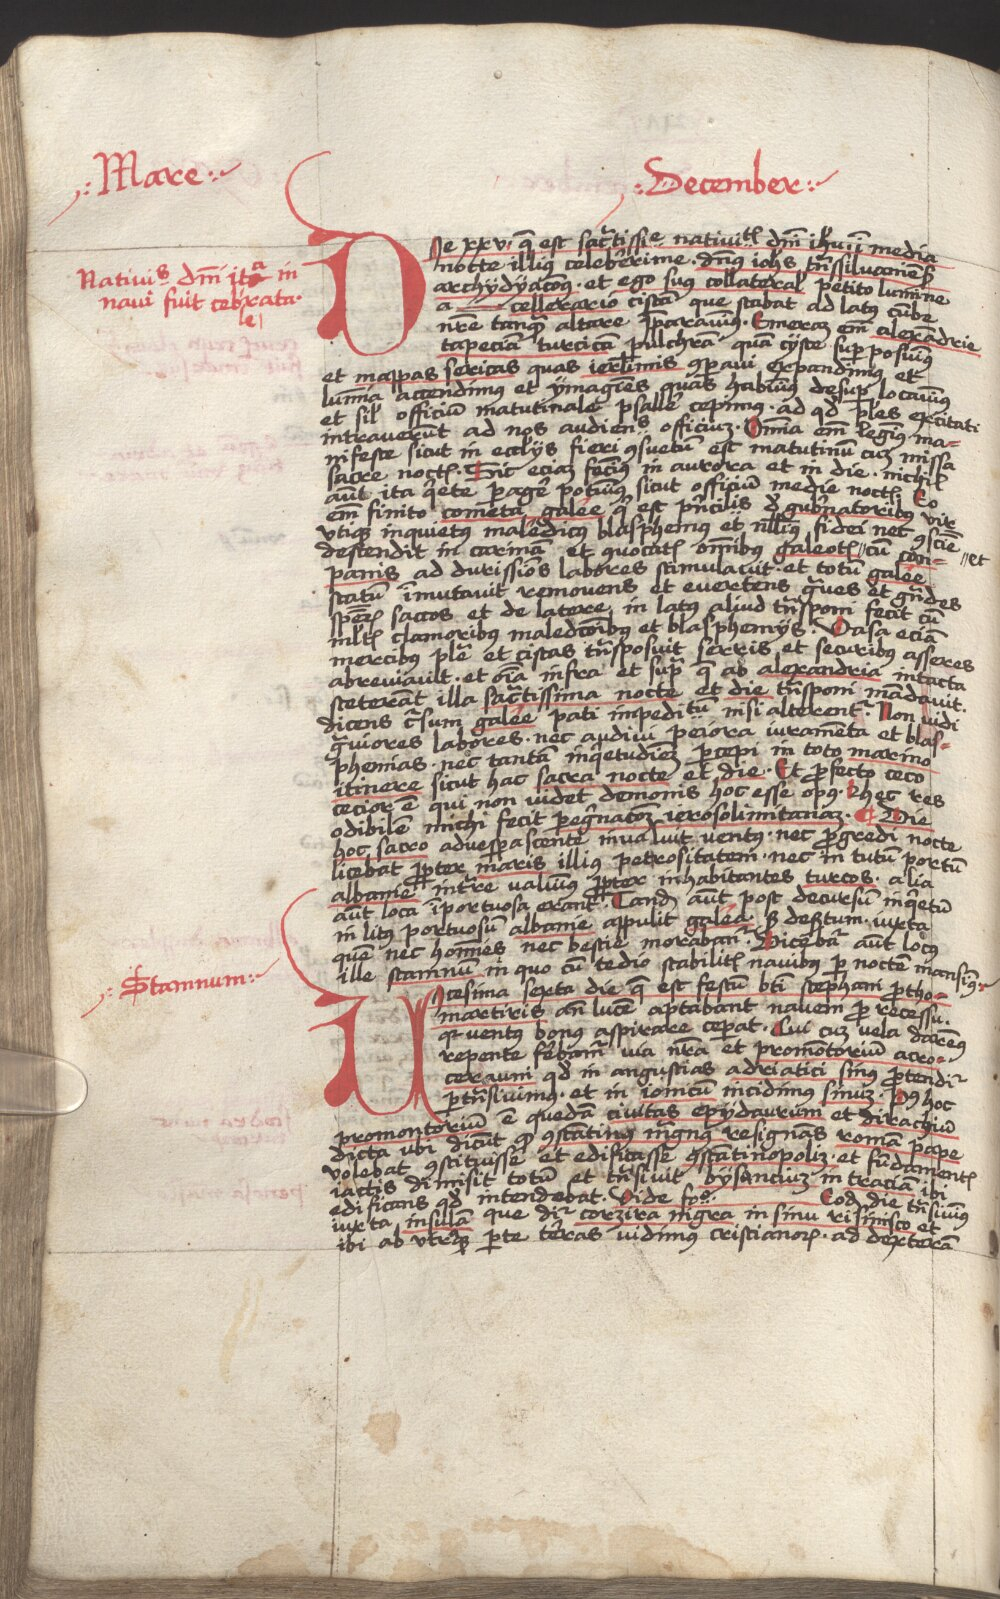 .:Mare:.
.:December:.
Nativi.s dm̄i ita in
navi fuit celebrata.
Die xxv. q̄ est sāctissiē. nativitꝭ dm̄i ihū. ī media
nocte illius celeberrime. dn̄us ioh̄s trn̄ssilvaniēs
archydyacon9. et ego suus collateral' petito lumine
a cellerario cistā que stabat ad latus cūbe
nr̄e tanq̄ altare p̄paravim9. Emerāt em̄ alexādrie
tapeciā turcicā pulchrā quā cyste supposuim9
et mappas sericas quas ierl'imis ɔparavi expandim9 et
lumīa accendimus et ymagīes quas habuim9 desup locavim9
et sil' officiū matutinale psallē cepimus. ad qd' p̄les excitati
intraverūt ad nos audiens officiuȝ. Omnia em̄ legim9 ma=
nifeste sicut in ecclijs fieri ɔsuetū est matutinū cuȝ missa
sacre noctꝭ. Sic eciaȝ fecim9 in aurora et in die. nichil
aūt ita q̄ete p̄agē potuim9 sicut officiū medie noctꝭ. Eo
em̄ finito cometa galee q̄ est p̄ncilis d' gubernatoribus vir
utiqȝ inquietus maledicus blasphemus et nulli9 fidei nec ɔsciē
descendit in carinā et quocatꝭ omībus galeotꝭ cū cōpi= et
panis ad durissios labores stimulavit. et totū galee
statū īmutavit removens et evertens gves et gn̄des
specꝭ saccos et de latere in latus aliud trn̄sponi fecit cū
mltꝭ clamoribus maledcōibus et blasphemijs. Vasa eciā
mercibus plē et cistas trn̄sposuit serris et securibus asseres
abreviavit. et oīa infra et sup q̄ ab alexandria intacta
steterāt illa sāctissima nocte et die trn̄sponi mādavit.
dicens cursum galee pati impeditū nisi alterent'. Non vidi
gviores labores. nec audivi peiora iuramēta et blas=
phemias. nec tantā inq̄etudineȝ percepi in toto marino
itinere sicut hac sacra nocte et die. Et profecto ceco
cecior ē qui non videt demonis hoc esse op9. Nhec res
odibilē michi fecit peg̃natoȝ ierosolimitanaȝ. Die
hoc sacro advesperascente invaluit ventus. nec progredi nocte
licebat propter maris illius petrositatem. nec in tutum portū
albanie intrare valuim9 propter inhabitantes turcos. alia
aūt loca īportuosa erant. Tandē aūt post decursū inq̄etū
in litus portuosū albanie appulit galea. s; desertum. iuxta
quē nec homīes nec bestie moraban'. Dicebā aūt locus
ille stamnū in quo cū tedio stabilitꝭ navibus p noctē mansim9.
.:Stamnum:.
Vicesima sexta die q̄ est festū bt̄i stephani protho=
martiris an̄ lucē aptabant navem pro recessu.
qr ventus bonus aspirare ceperat. Cui cuȝ vela darem9
repente ferebam' via nr̄a et promōtoriū acro=
ceraunī qd' in angustias adriatici sinus protendi'
pertrn̄sivimus. et in ionicū incidimus sinuȝ. P9 hoc
promontoriū ē quedā civitas epydaurum et dirachiū
dicta ubi dicūt qd ɔstātinus mgnus resignās romā pape
volebat ɔstituisse et edificasse ɔstātinopoliȝ. et fūdamentꝭ
iactis dimisit totū et trn̄sivit bysanciuȝ in traciā ibi
edificans qd' intendebat. Vide fo. Eodē die trn̄sivim9
iuxta insulā que di' corzira nigra in sinu risinisco et
ibi ab utraqȝ perte terras vidimus cristianoꝝ. ad dexterā